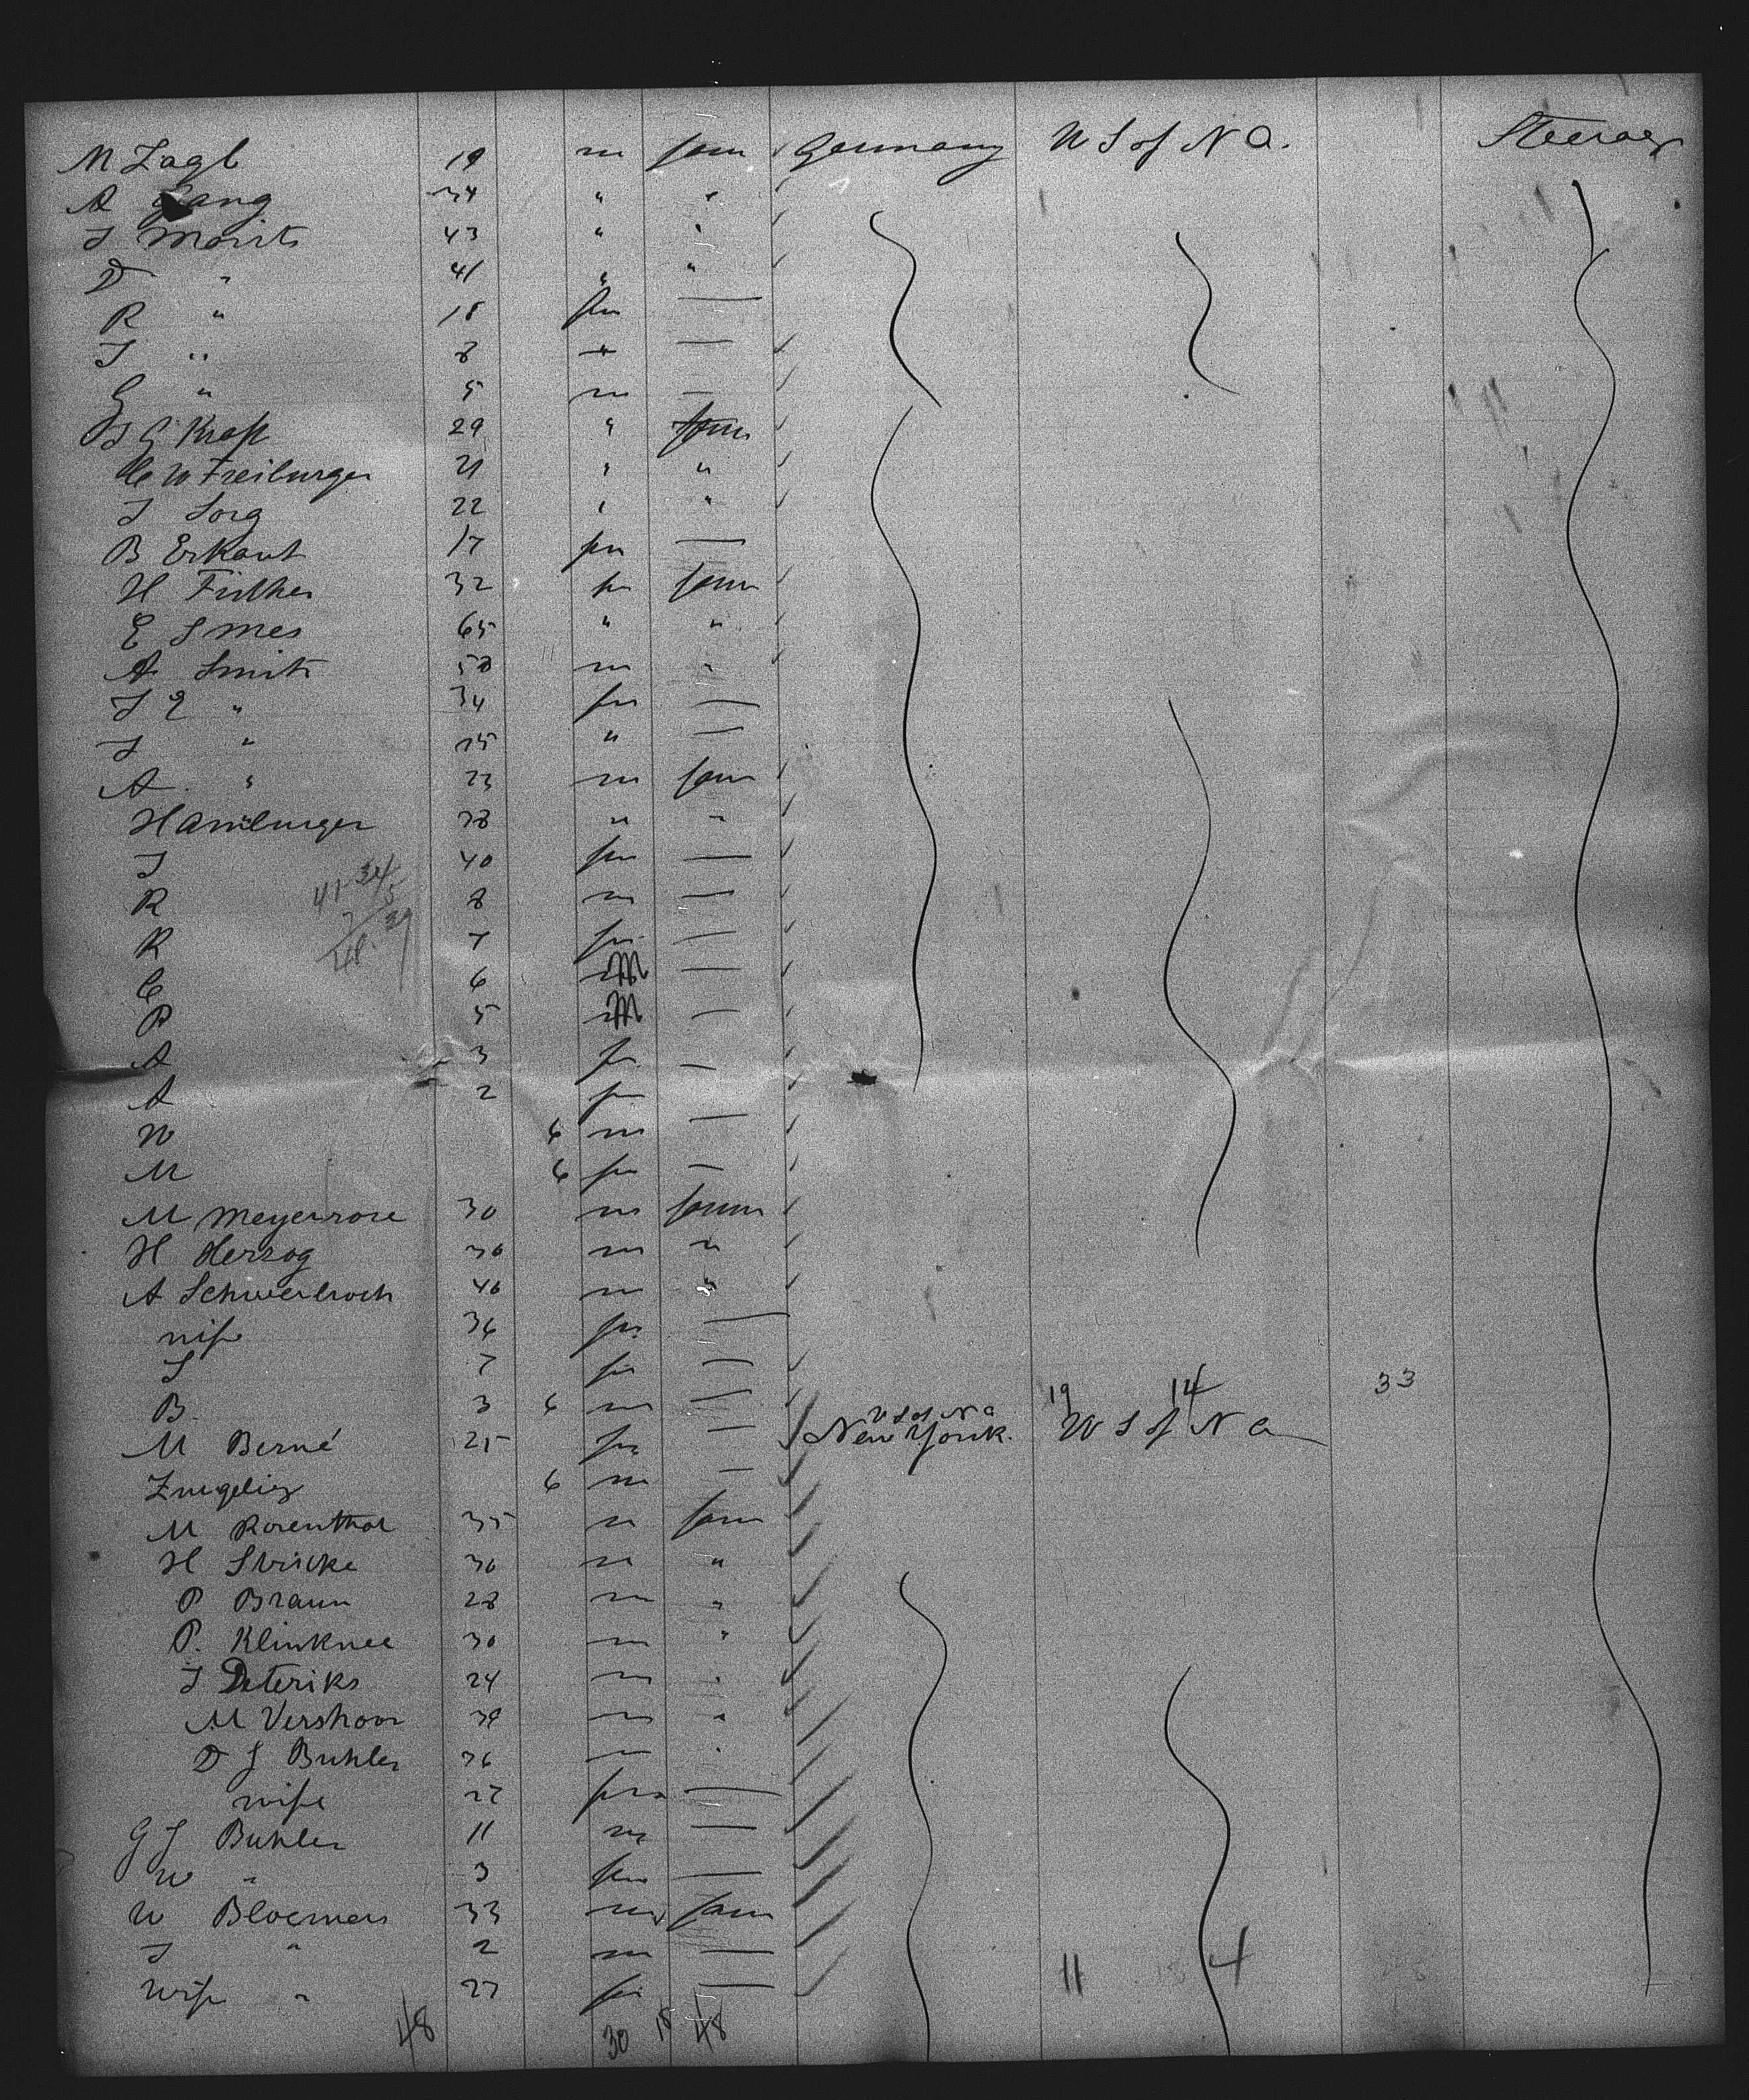 M Zagl 19 m farm Germany U S of N A. Steerage
A Lang 34 " "
J Morits 43 " "
D " 41 " "
R " 18 fm —
J " 8 —
G " 5 m —
J G Kraft 29 " farm
C W Freiburger 21 " "
J Sorg 22 " "
B Erkant 17 fm —
H 32 farm
E Smes 65 " "
A Smits 58 m "
J E " 34 fm —
J " 15 " —
A " 23 m farm
Hamburger 38 " "
J 40 fm —
R 8 m —
R 7 fm —
C 6 M —
P 5 M —
A 3 f —
A 2 fm
W 6 m —
M 6 fm —
M Meyerrose 30 m farm
H Herzog 36 m "
A 46 m "
wife 36 fm —
S 7 fm —
B. 3 6 m — 19 14 33
M Berné 25 fm — U S of N A New York. U S of N A
6 m —
M Rosenthal 35 m farm
H Stricke 30 m "
P Braun 28 m "
P. Klinknee 30 m "
J Deteriks 24 m "
M Vershoor 39 m "
D J Buhler 36 m "
wife 27 fm —
G J Buhler 11 m —
W " 3 fm —
W Bloemers 33 m farm
J " 2 m — 11 4
wife " 27 fm —
48 30 18 48